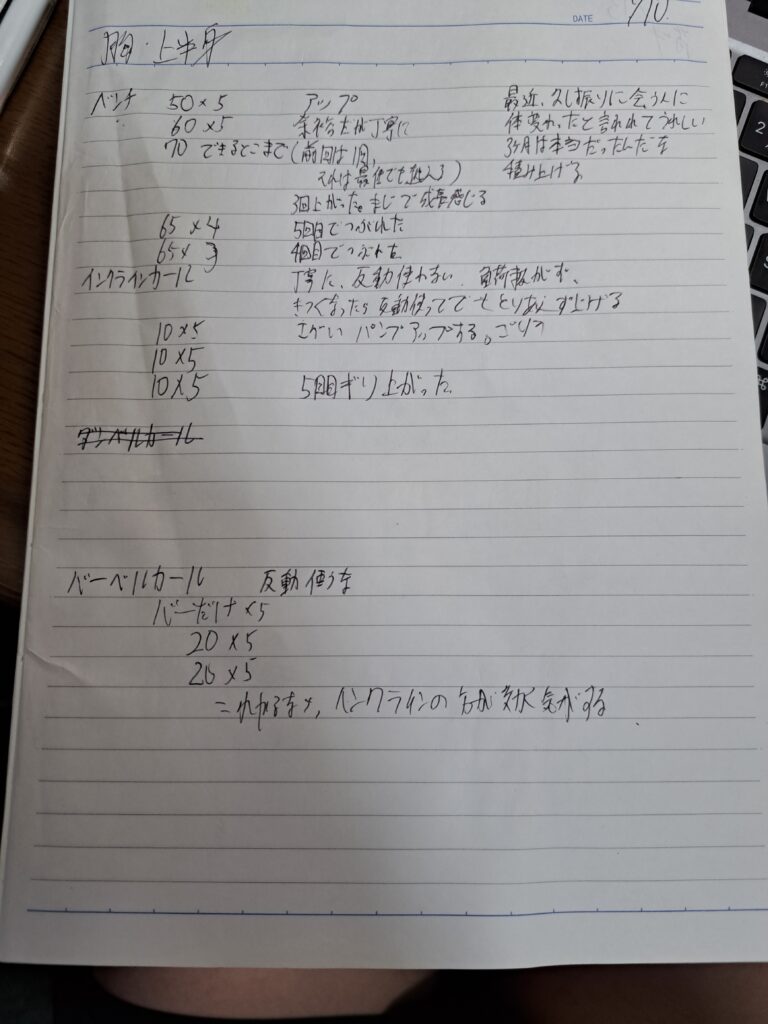 DATE 7/10
胸・上半身
ベンチ 50×5 アップ 最近、久し振りに会う人に
60×5 余裕だが丁寧に 体変わったと言われてうれしい
70 できるとこまで(前回は1回、 3ヶ月は本当だったんだな
それは最低でも超える) 積み上げる
3回上がった。まじで成長感じる
65×4 5回目でつぶれた
65×3 4回目でつぶれた
インクラインカール 丁寧に、反動使わない 負荷抜かず、
きつくなったら反動使ってでもとりあえず上げる
10×5 パンプアップする。
10×5
10×5 5回目ギリ上がった
ダンベルカール
バーベルカール 反動使うな
バーだけ×5
20×5
20×5
これやるなら、インクラインの方が効く気がする